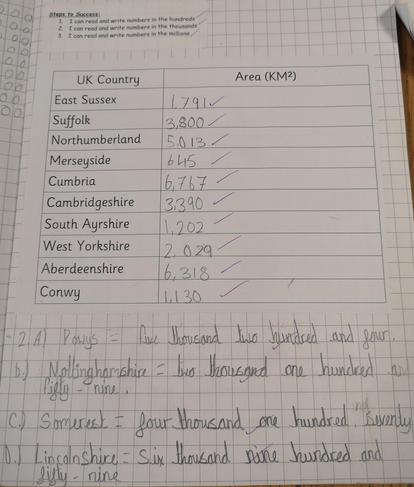 Steps to Success:
1. I can read and write numbers in the hundreds
2. I can read and write numbers in the thousands
3. I can read and write numbers in the millions
UK Country Area (KM²)
East Sussex 1,791
Suffolk 3,800
Northumberland 5,013
Merseyside 645
Cumbria 6,767
Cambridgeshire 3,390
South Ayrshire 1,202
West Yorkshire 2,029
Aberdeenshire 6,318
Conwy 1,130
2.A) Powys = five thousand two hundred and four.
b.) Nottinghamshire = two thousand one hundred and
fifty-nine.
C.) Somerest = four thousand one hundred and seventy
D.) Lincolnshire = Six thousand nine hundred and
fifty-nine